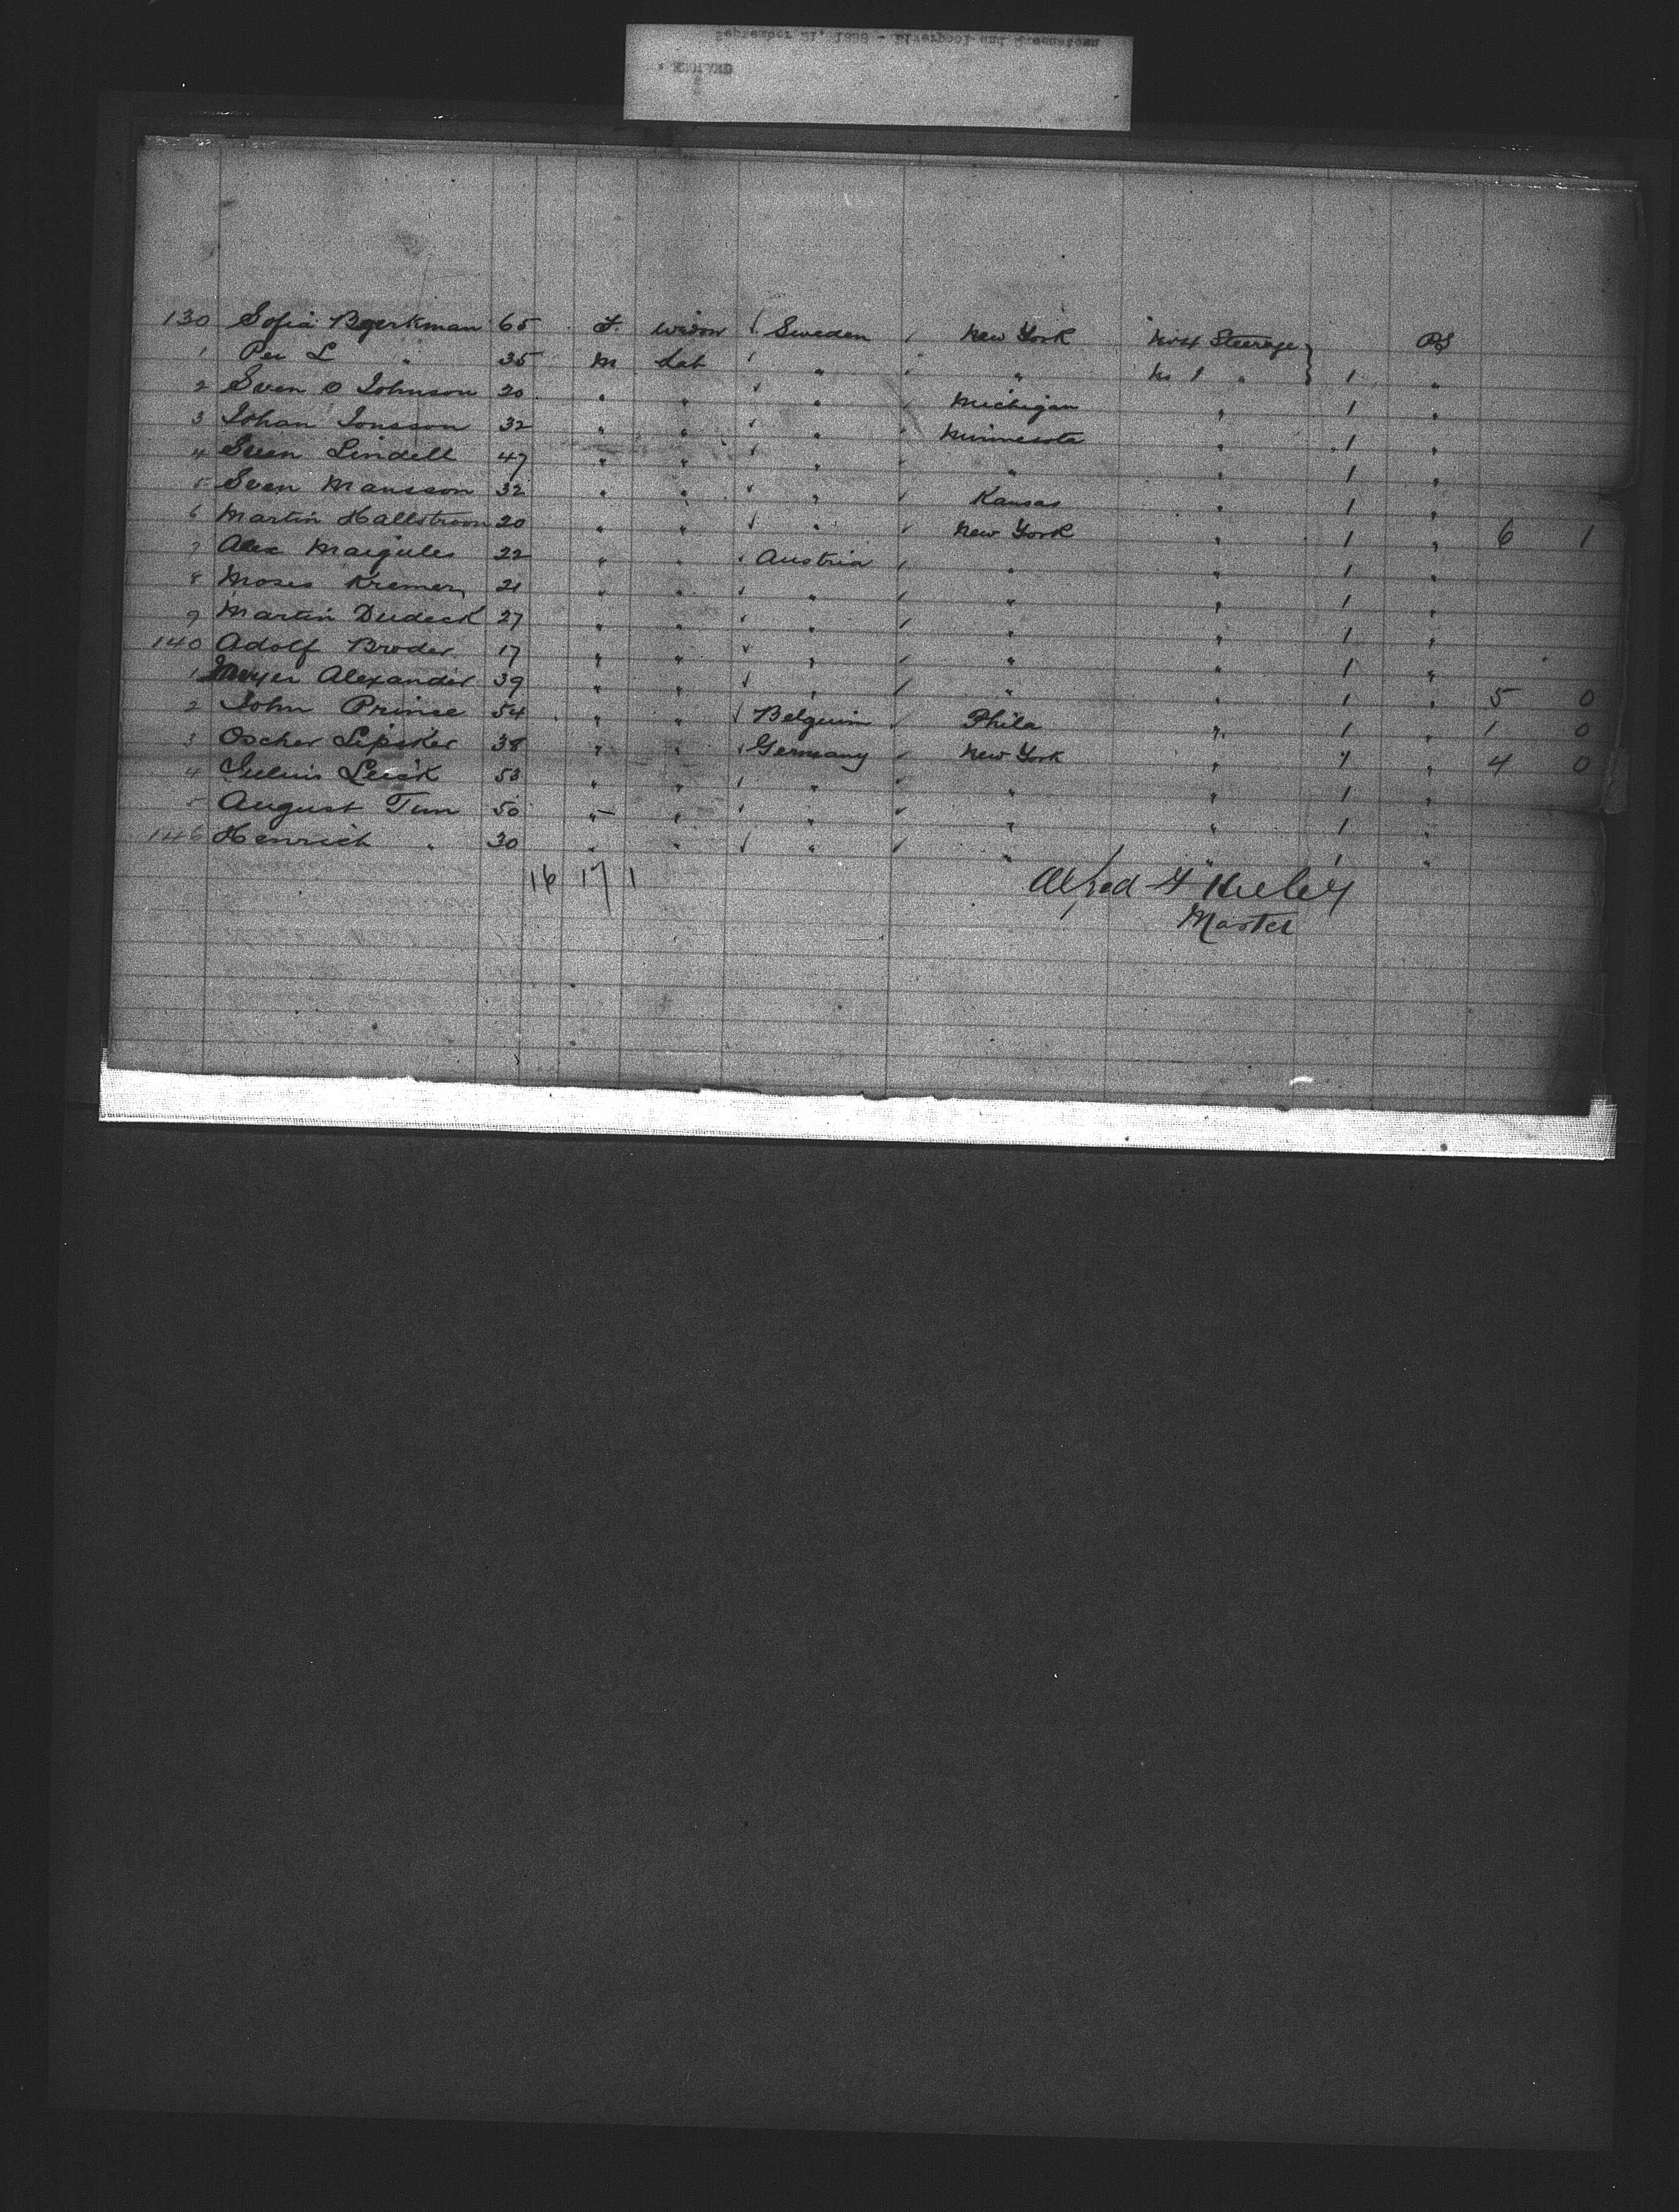 September 21, 1888 - Liverpool and Queenstown
130 Sofia Bjerkman 65 F. widow Sweden New York No 4 Steerage PS
1 Per L " 35 M Lab " " No 1 " 1 "
2 Sven O Johnson 20 " " " Michigan " 1 "
3 Johan Jonsson 32 " " " Minnesota " 1 "
4 Sven Lindell 47 " " " " " 1 "
5 Sven Mansson 32 " " " Kansas " 1 "
6 Martin Hallstrom 20 " " " New York " 1 " 6 1
7 Alex Margules 22 " " Austria " " 1 "
8 Moses Kremer 21 " " " " " 1 "
9 Martin Dudeck 27 " " " " " 1 "
140 Adolf Broder 17 " " " " " 1 "
1 Meyer Alexander 39 " " " " " 1 " 5 0
2 John Prince 54 " " Belguim Phila " 1 " 1 0
3 Oscher Lipsker 38 " " Germany New York " 1 " 4 0
4 Julius 53 " " " " " 1 "
5 August Tim 50 " " " " " 1 "
146 Henrich " 30 " " " " " 1 "
16 17 1
Alfred
Master